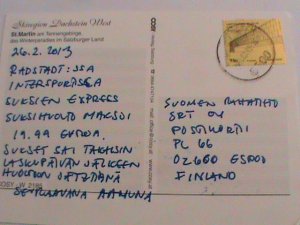 Skiregion Dachstein West
St.Martin am Tennengebirge,
das Wintererlebnis im Salzburger Land!
26.2.2013
RADSTADT:SSA
INTERSPORTSSA
SUKSIEN EXPRESS
SUKSIHUOLTO MAKSOI
19.99 EUROA.
SUKSET SAI TAKAISIN
LASKUPÄIVÄN JÄLKEEN
HUOLLON JÄTETTÄVÄ
SEURAAVANA AAMUNA
SUOMEN RAHATIETO
SRT OY
POSTILOKERO
PL 66
02600 ESPOO
FINLAND
COSY - W 2185